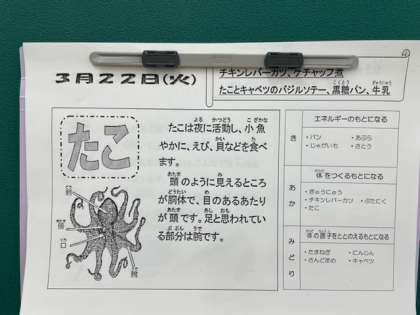 3月22日(火)
チキンレバーカツ、ケチャップ煮
たことキャベツのバジルソテー、黒糖パン、牛乳
たこ
たこは夜に活動し、小魚
やかに、えび、貝などを食べ
ます。
頭のように見えるところ
が胴体で、目のあるあたり
が頭です。足と思われてい
る部分は腕です。
頭
口
腕
き
エネルギーのもとになる
・パン ・あぶら
・じゃがいも ・さとう
あか
体をつくるもとになる
・ぎゅうにゅう
・チキンレバーカツ ・ぶたにく
・たこ
みどり
体の調子をととのえるもとになる
・たまねぎ ・にんじん
・さんどまめ ・キャベツ